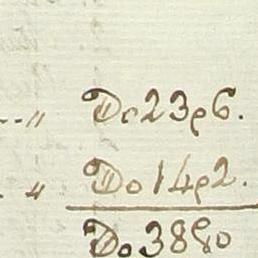 „ Do 2396.
„ Do 1492.
Do 3880